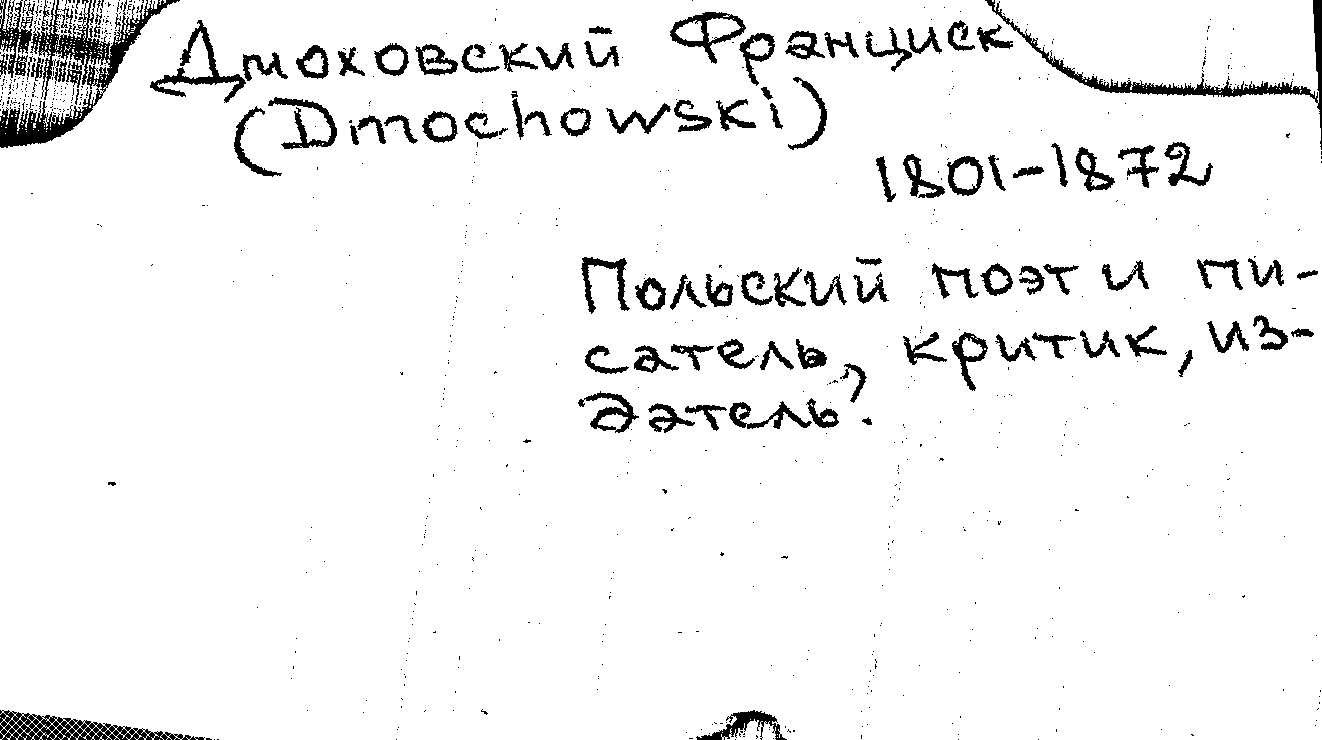 Дмоховский Франциск
(Dmochowski)
1801-1872
Польский поэт и пи-
сатель, критик, из-
датель.